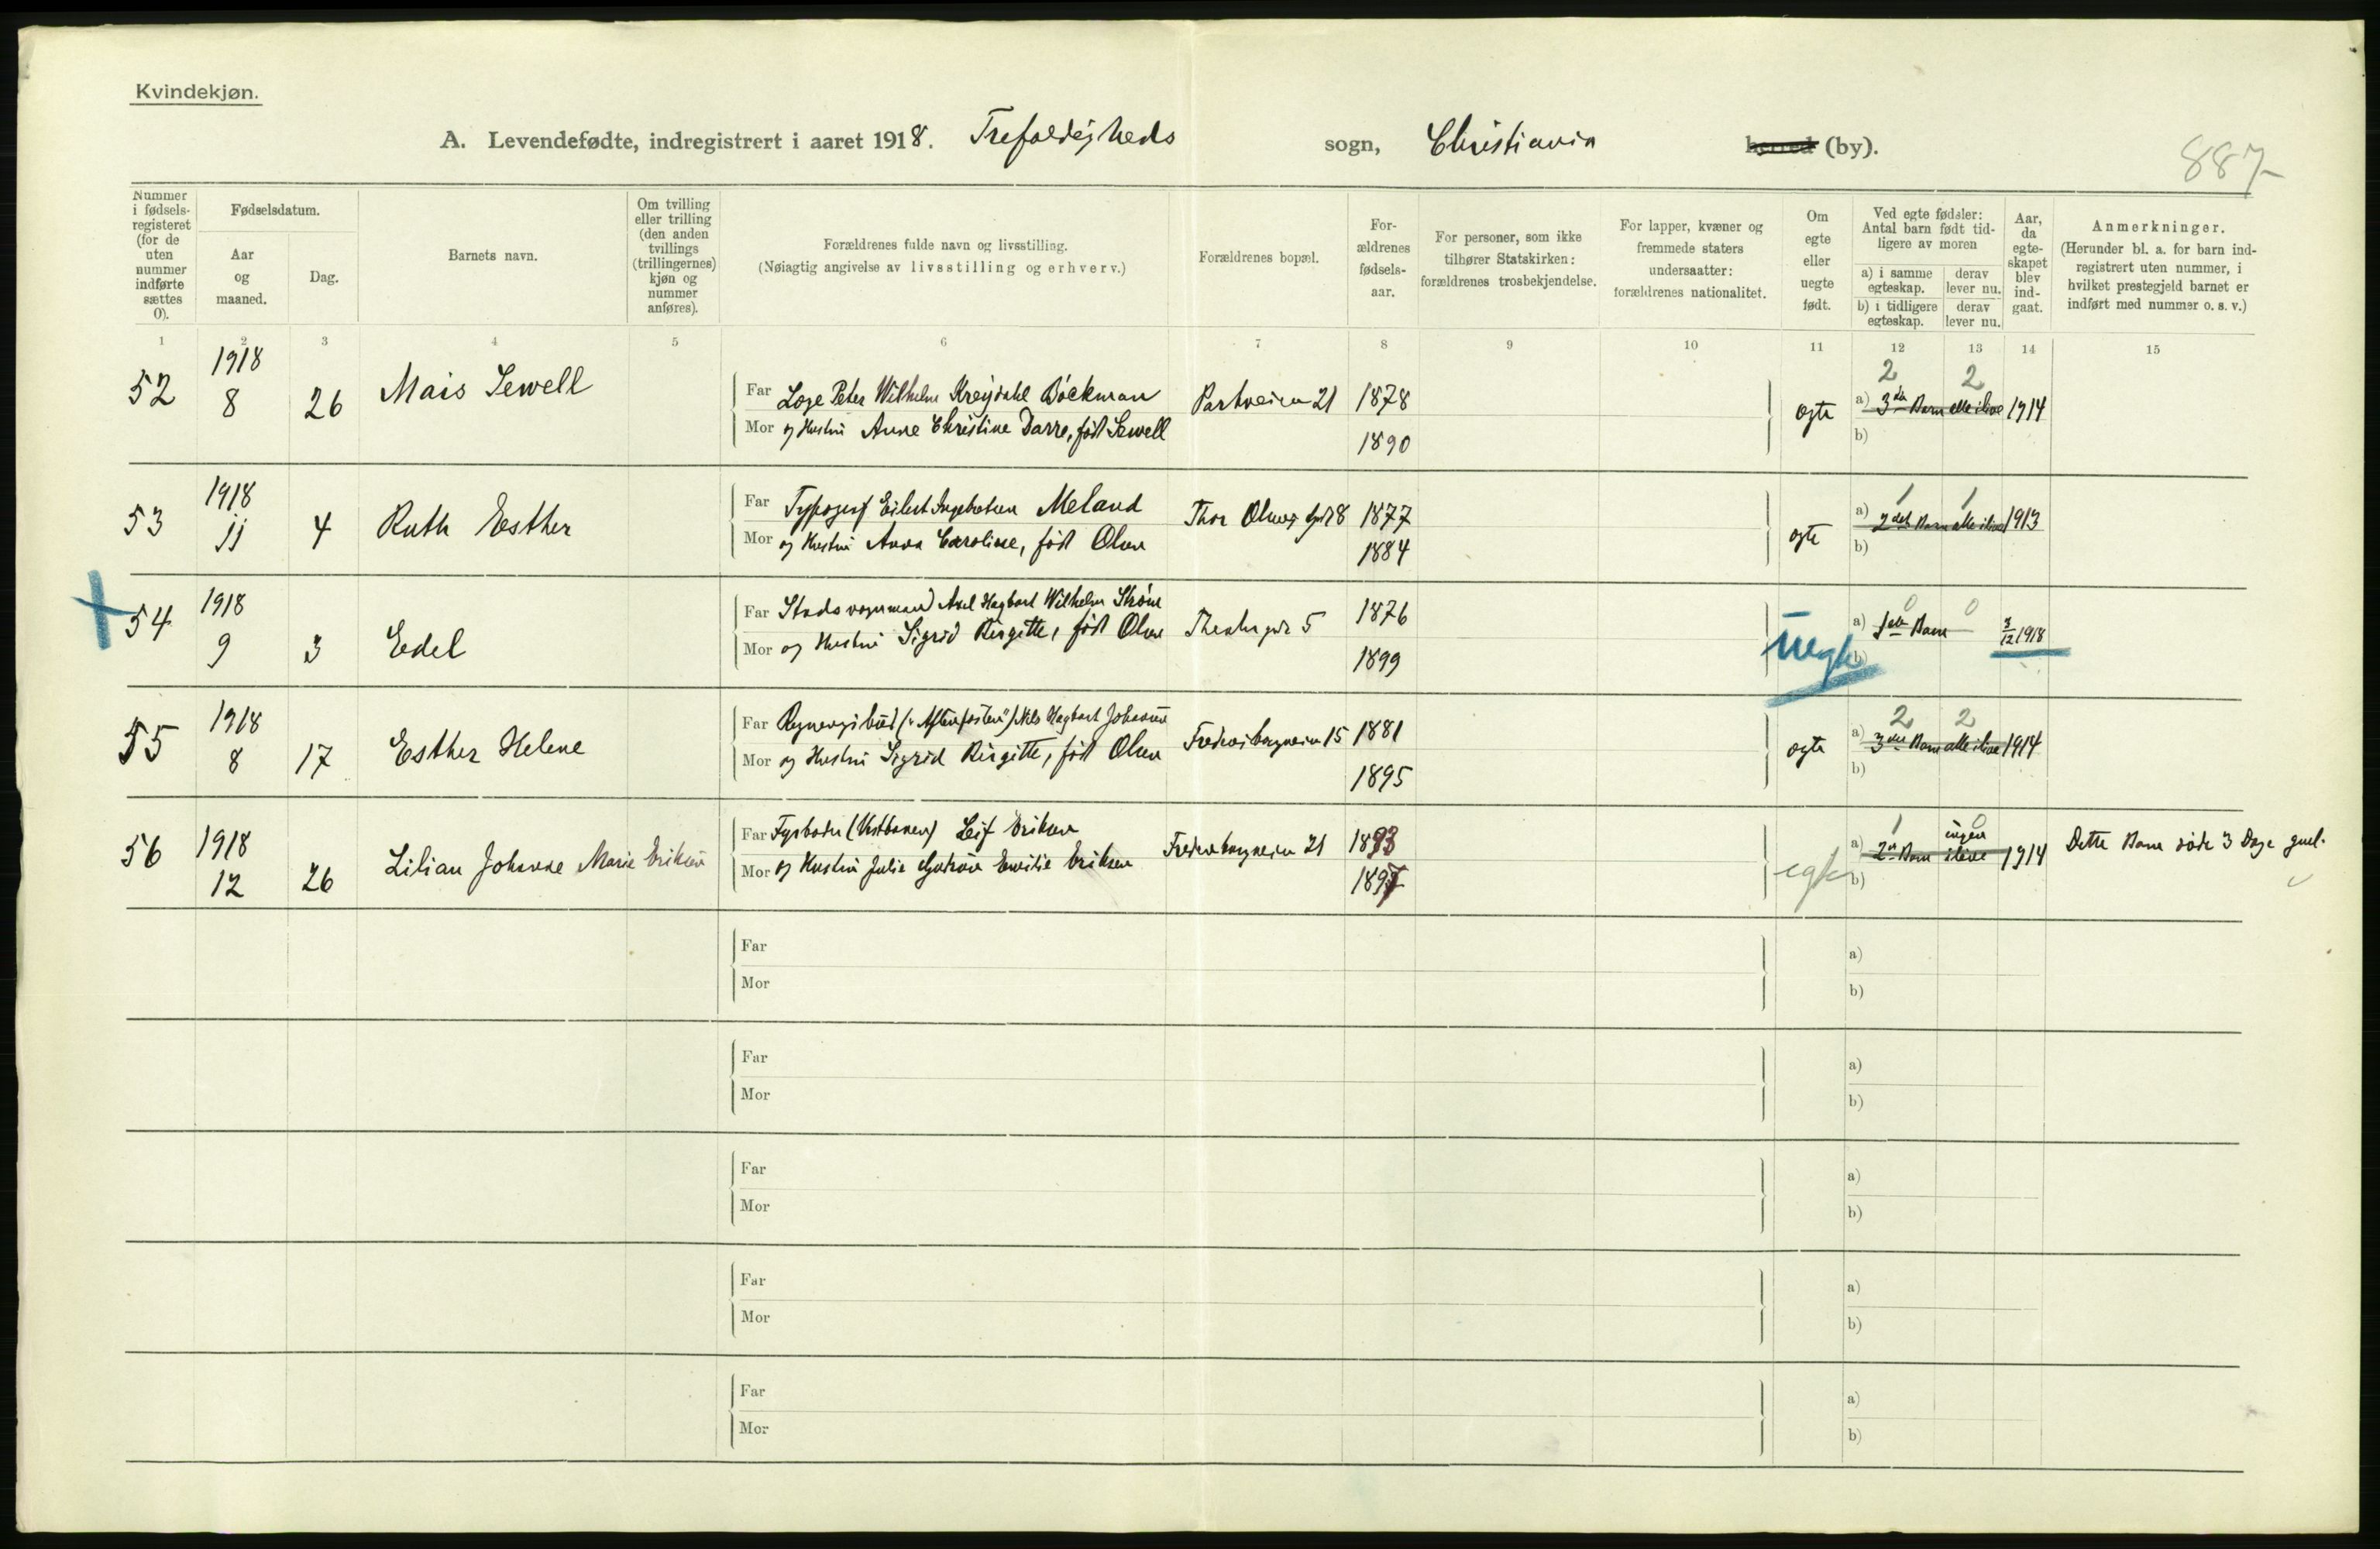 Kvindekjøn.
A. Levendefødte, indregistrert i aaret 1918. Trefoldigheds sogn, Christiania herred (by).
887
Nummer i fødselsregisteret (for de uten nummer indførte sættes 0).
Fødselsdatum.
Aar og maaned.
Dag.
Barnets navn.
Om tvilling eller trilling (den anden tvillings (trillingernes) kjøn og nummer anføres).
Forældrenes fulde navn og livsstilling.
(Nøiagtig angivelse av livsstilling og erhverv.)
Forældrenes bopæl.
Forældrenes fødselsaar.
For personer, som ikke tilhører Statskirken: forældrenes trosbekjendelse.
For lapper, kvæner og fremmede staters undersaatter: forældrenes nationalitet.
Om egte eller uegte født.
Ved egte fødsler: Antal barn født tidligere av moren
a) i samme egteskap.
derav lever nu.
b) i tidligere egteskap.
derav lever nu.
Aar, da egteskapet blev indgaat.
Anmerkninger.
(Herunder bl. a. for barn indregistrert uten nummer, i hvilket prestegjeld barnet er indført med nummer o. s. v.)
1 2 3 4 5 6 7 8 9 10 11 12 13 14 15
52 1918 8 26 Mais Sewell
Far Peter Wilhelm Bøckman 1878
Mor og Hustru Anne Christine Darre, født Sewell 1890
Parkveien 21
egte a) 3die Barn alle ilive 2 2 1914
b)
53 1918 11 4 Ruth Esther
Far Typograf Eilert Ingebretsen Meland 1877
Mor og Hustru Anna Caroline, født Olsen 1884
Thor Olsens gd 8
egte a) 2det Barn alle ilive 1 1 1913
b)
54 1918 9 3 Edel
Far Axel Hagbart Wilhelm Strøm 1876
Mor og Hustru Sigrid Birgitte, født Olsen 1899
Theatergd 5
uegte a) 1ste Barn 0 0 3/12 1918
b)
55 1918 8 17 Esther Helene
Far Regningsbud ("Aftenposten") Nils Hagbart Johansen 1881
Mor og Hustru Sigrid Birgitte, født Olsen 1895
Fredensborgveien 15
egte a) 3die Barn alle ilive 2 2 1914
b)
56 1918 12 26 Lilian Johanne Marie Eriksen
Far Fyrbøder (Vestbanen) Leif Eriksen 1893
Mor og Hustru Julie Emilie Eriksen 1897
Fredensborgveien 21
egte a) 2et Barn ingen ilive 1 0 1914
b)
Dette Barn døde 3 Dage gml.
Far
Mor
a)
b)
Far
Mor
a)
b)
Far
Mor
a)
b)
Far
Mor
a)
b)
Far
Mor
a)
b)